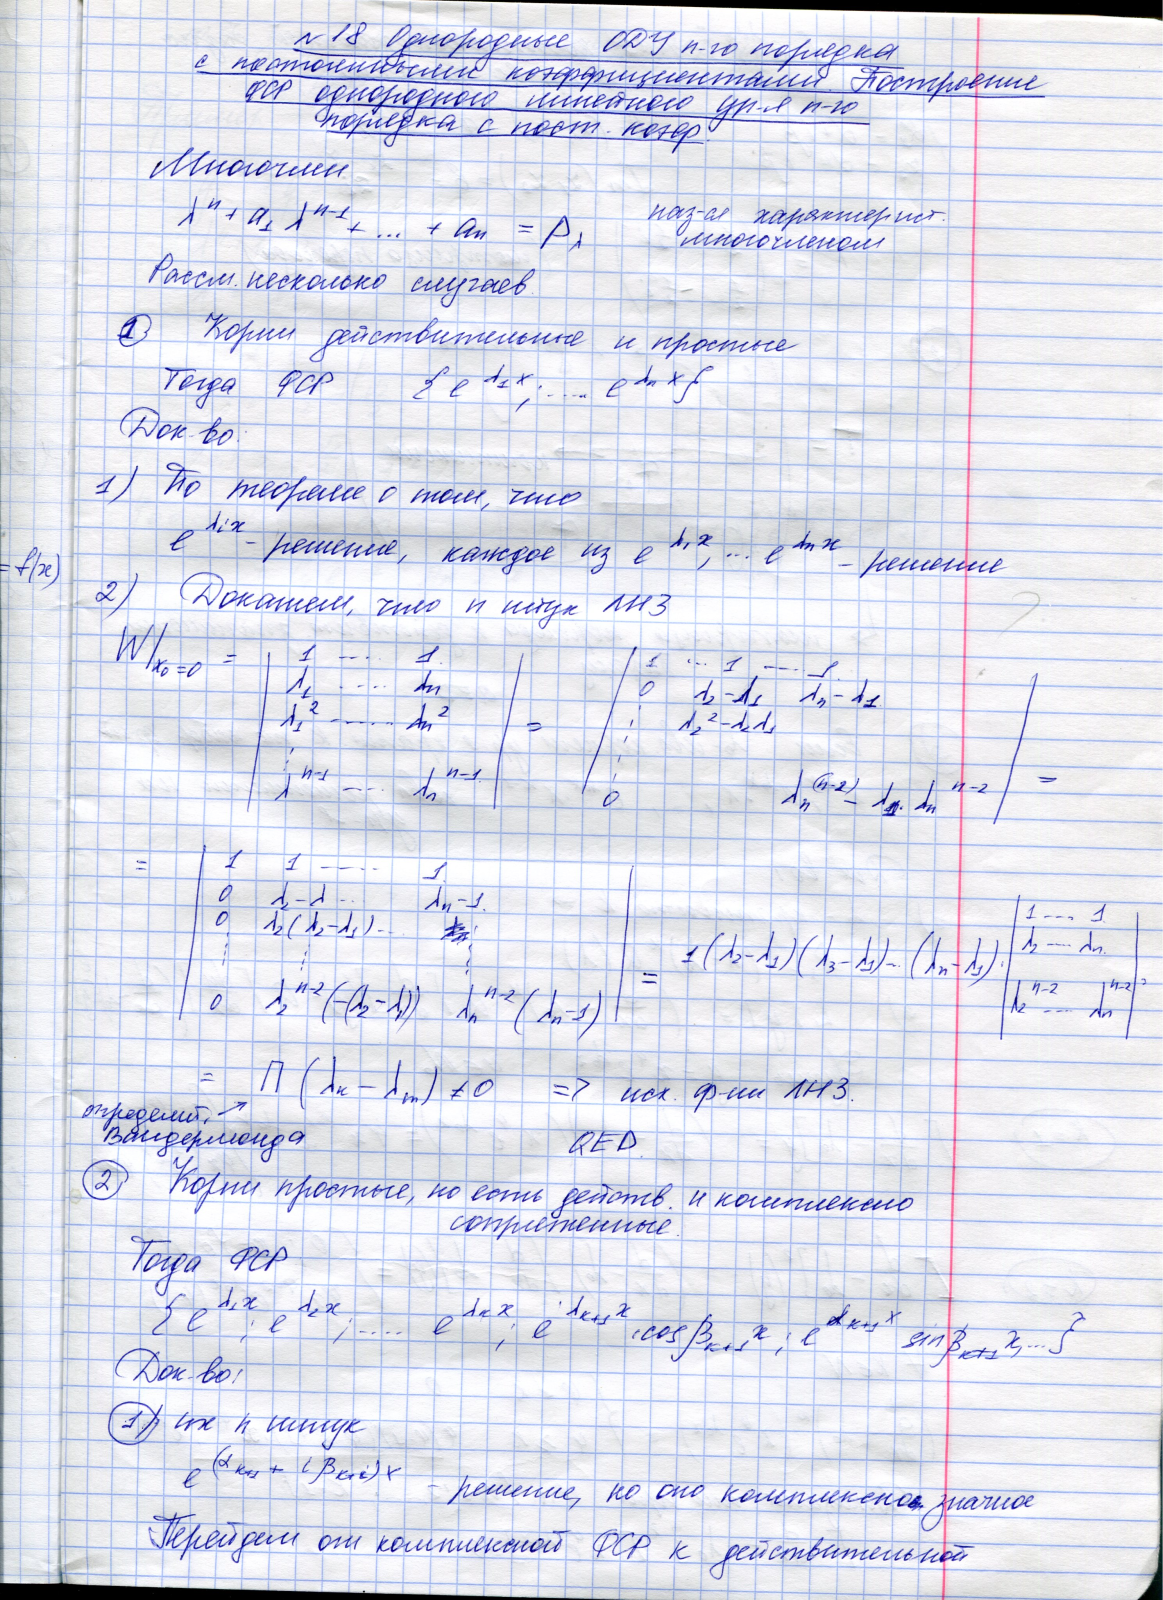 №18 Однородные ОДУ n-го порядка
с постоянными коэффициентами. Построение
ФСР однородного линейного ур-я n-го
порядка с пост. коэф.
Многочлен
λ^n + a_1 λ^{n-1} + ... + a_n = P_λ
наз-ся характерист.
многочленом
Рассм. несколько случаев.
① Корни действительные и простые
Тогда ФСР { e^{λ_1 x}; .... e^{λ_n x} }
Док-во:
1) По теореме о том, что
e^{λ_i x} - решение, каждое из e^{λ_1 x}, ... e^{λ_n x} - решение
= f(x)
2) Докажем, что n штук ЛНЗ
W|_{x_0=0} = | 1 ---- 1 | = | 1 ... 1 ---- 1 |
λ_1 ---- λ_n 0 λ_2 - λ_1 λ_n - λ_1
λ_1^2 ----- λ_n^2 λ_2^2 - λ_2 λ_1
λ^{n-1} ---- λ_n^{n-1} 0 λ_n^{(n-2)} - λ_1 λ_n^{n-2} =
= | 1 1 ----- 1 |
0 λ_2 - λ ... λ_n - 1
0 λ_2(λ_2 - λ_1) ...
0 λ_2^{n-2}(-(λ_2 - λ_1)) λ_n^{n-2}(λ_n - 1)
= 1(λ_2 - λ_1)(λ_3 - λ_1)...(λ_n - λ_1) · | 1 .... 1 |
λ_2 --- λ_n
λ_2^{n-2} ... λ_n^{n-2} =
= П(λ_k - λ_m) ≠ 0 => исх. ф-ии ЛНЗ.
определит.
Вандермонда
QED.
② Корни простые, но есть действ. и комплексно
сопряженные.
Тогда ФСР
{ e^{λ_1 x}; e^{λ_2 x}; .... e^{λ_k x}; e^{λ_{k+1} x} · cos β_{k+1} x; e^{α_{k+1} x} sin β_{k+1} x, ... }
Док-во:
1) их n штук
e^{(α_{k+1} + i β_{k+1}) x} - решение, но оно комплексно значное
Перейдем от комплексной ФСР к действительной